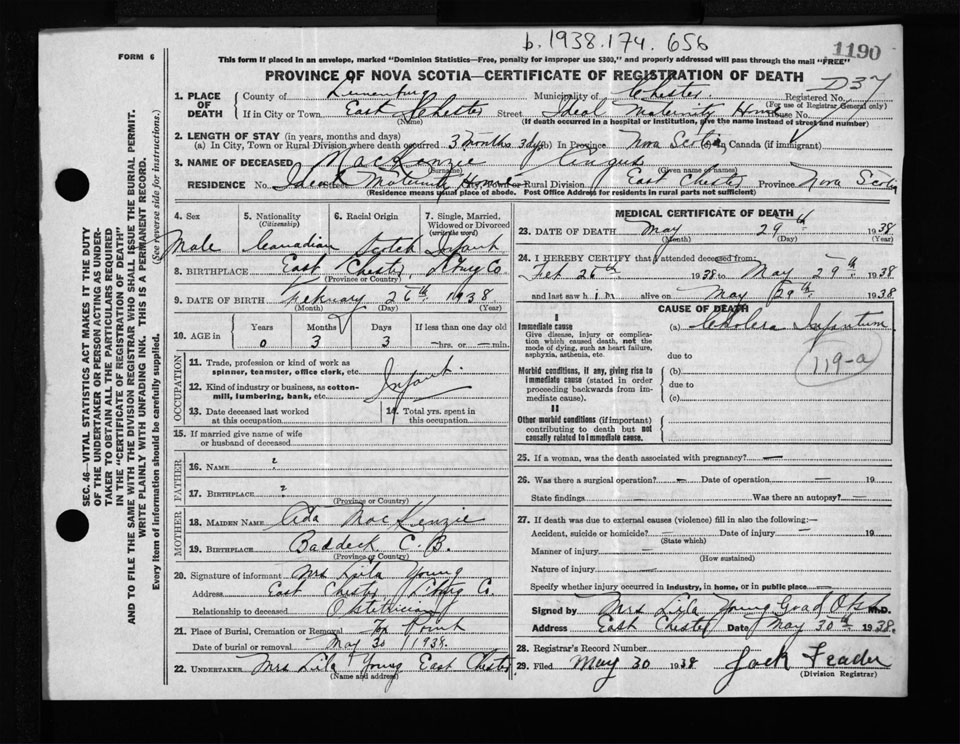 b. 1938.174. 656
1190
FORM 6
This form if placed in an envelope, marked "Dominion Statistics—Free, penalty for improper use $300," and properly addressed will pass through the mail "FREE"
PROVINCE OF NOVA SCOTIA—CERTIFICATE OF REGISTRATION OF DEATH
D37
1. PLACE OF DEATH
County of Lunenburg Municipality of Chester. Registered No.
(For use of Registrar General only)
If in City or Town East Chester Street Ideal Maternity Home House No.
(Name) (If death occurred in a hospital or institution, give the name instead of street and number)
2. LENGTH OF STAY (in years, months and days)
(a) In City, Town or Rural Division where death occurred 3 months 3 dys (b) In Province Nova Scotia (c) In Canada (if immigrant)
3. NAME OF DECEASED MacKenzie Angus
(Surname) (Given name or names)
RESIDENCE No. Ideal Street Maternity Home City, Town or Rural Division East Chester Province Nova Scotia
(Residence means usual place of abode. Post Office Address for residents in rural parts not sufficient)
4. Sex 5. Nationality (Citizenship) 6. Racial Origin 7. Single, Married, Widowed or Divorced (write the word)
Male Canadian Scotch Infant
8. BIRTHPLACE East Chester,
(Province or Country)
9. DATE OF BIRTH February 26th 1938
(Month) (Day) (Year)
10. AGE in Years Months Days If less than one day old
0 3 3 —hrs. or —min.
OCCUPATION
11. Trade, profession or kind of work as spinner, teamster, office clerk, etc.
12. Kind of industry or business, as cotton-mill, lumbering, bank, etc.
Infant.
13. Date deceased last worked at this occupation
14. Total yrs. spent in this occupation
15. If married give name of wife or husband of deceased
FATHER
16. NAME ?
17. BIRTHPLACE ?
(Province or Country)
MOTHER
18. MAIDEN NAME Ada MacKenzie
19. BIRTHPLACE Baddeck C. B.
(Province or Country)
20. Signature of informant Mrs Lila Young
Address East Chester
Relationship to deceased Obstetrician
21. Place of Burial, Cremation or Removal Fox Point
Date of burial or removal May 30 1938.
22. UNDERTAKER Mrs Lila Young East Chester
(Name and address)
MEDICAL CERTIFICATE OF DEATH
23. DATE OF DEATH May 29th 1938
(Month) (Day) (Year)
24. I HEREBY CERTIFY that I attended deceased from:
Feb 26th 1938 to May 29th 1938
and last saw him alive on May 29th 1938.
CAUSE OF DEATH
I
Immediate cause
Give disease, injury or complication which caused death, not the mode of dying, such as heart failure, asphyxia, asthenia, etc.
(a) Cholera Infantum
119-a
due to
Morbid conditions, if any, giving rise to immediate cause (stated in order proceeding backwards from immediate cause).
(b)
due to
(c)
II
Other morbid conditions (if important) contributing to death but not causally related to immediate cause.
25. If a woman, was the death associated with pregnancy? —
26. Was there a surgical operation? — Date of operation — 19
State findings — Was there an autopsy? —
27. If death was due to external causes (violence) fill in also the following:—
Accident, suicide or homicide? — Date of injury — 19
(State which)
Manner of injury —
(How sustained)
Nature of injury —
Specify whether injury occurred in industry, in home, or in public place —
Signed by Mrs Lila Young Grad Obst M.D.
Address East Chester Date May 30th 1938.
28. Registrar's Record Number
29. Filed May 30 1938 Jack Feader
(Division Registrar)
SEC. 46—VITAL STATISTICS ACT MAKES IT THE DUTY
OF THE UNDERTAKER OR PERSON ACTING AS UNDER-
TAKER TO OBTAIN ALL THE PARTICULARS REQUIRED
IN THE "CERTIFICATE OF REGISTRATION OF DEATH"
AND TO FILE THE SAME WITH THE DIVISION REGISTRAR WHO SHALL ISSUE THE BURIAL PERMIT.
WRITE PLAINLY WITH UNFADING INK. THIS IS A PERMANENT RECORD.
Every item of information should be carefully supplied. (See reverse side for instructions.)